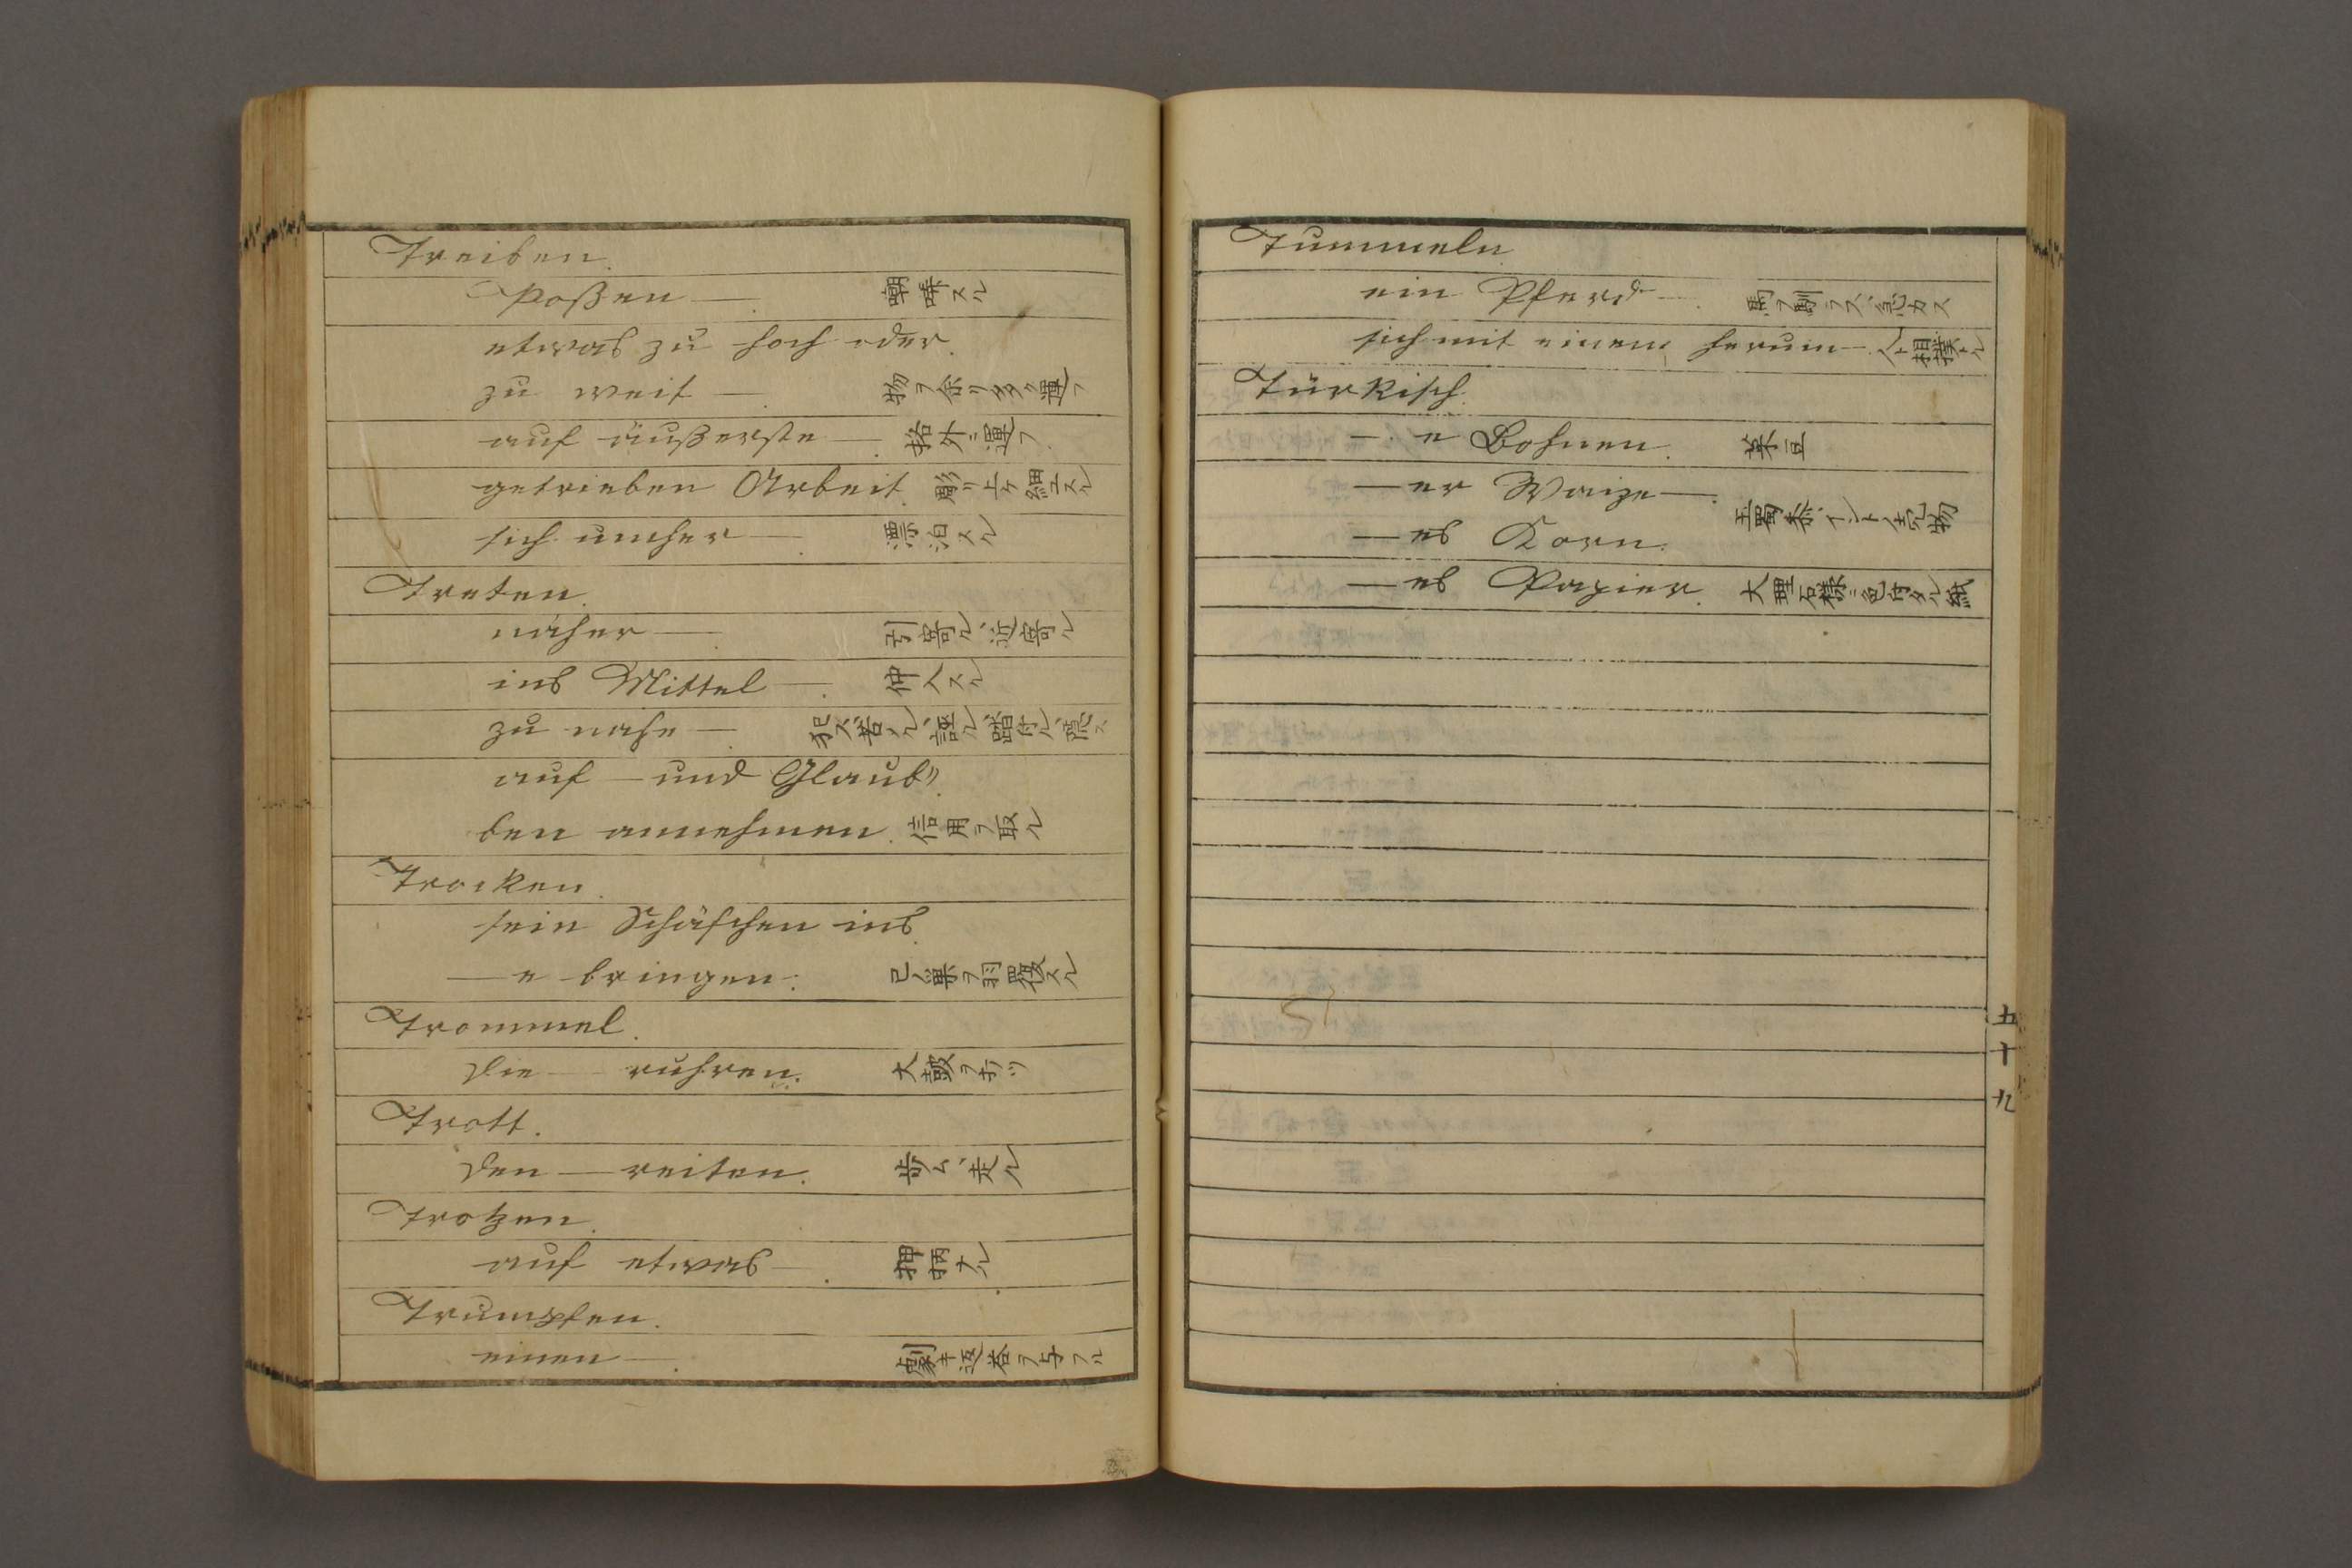 Treiben.
Poßen —. 嘲哢スル
etwas zu hoch oder
zu weit —. 物ヲ余リ多ク運フ
auf äußerste —. 格外ニ運フ
getrieben Arbeit. 彫リ上ケ細工スル
sich umher —. 漂泊スル
Treten.
näher —. 引寄ル、近寄ル
ins Mittel —. 仲人スル
zu nahe —. 犯ス、苦メル、誣ル、踏付ル
auf — und Glaub〃
ben annehmen. 信用ヲ取ル
Trocken.
sein Schäfchen ins
—e bringen. 己ノ巣ヲ羽覆スル
Trommel.
die — ruhren. 大鼓ヲ打ツ
Trott.
den — reiten. 歩ム、走ル
Trotzen.
auf etwas —. 押柄ナル
Trumpfen.
einen —. 劇キ返答ヲ与フル
Tummeln
ein Pferd —. 馬ヲ馴ラス、急カス
sich mit einem herum —. 人ト相撲トル
Türkisch.
—e Bohnen. 菜豆
—er Waize —.
—es Korn. 玉蜀黍、イント、売物
—es Papier. 大理石様ニ色付タル紙
五十九